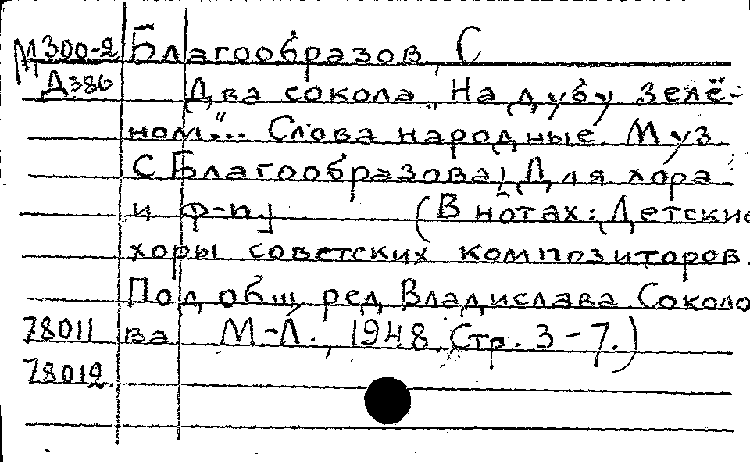 М300-2 Благообразов, С
Д386 Два сокола „На дубу зелё-
ном"... Слова народные. Муз
С Благообразова, [Для хора
и ф-п] (В нотах: Детские
хоры советских композиторов.
Под общ ред Владислава Соколо
78011 ва М-Л., 1948 Стр. 3-7.)
78012.